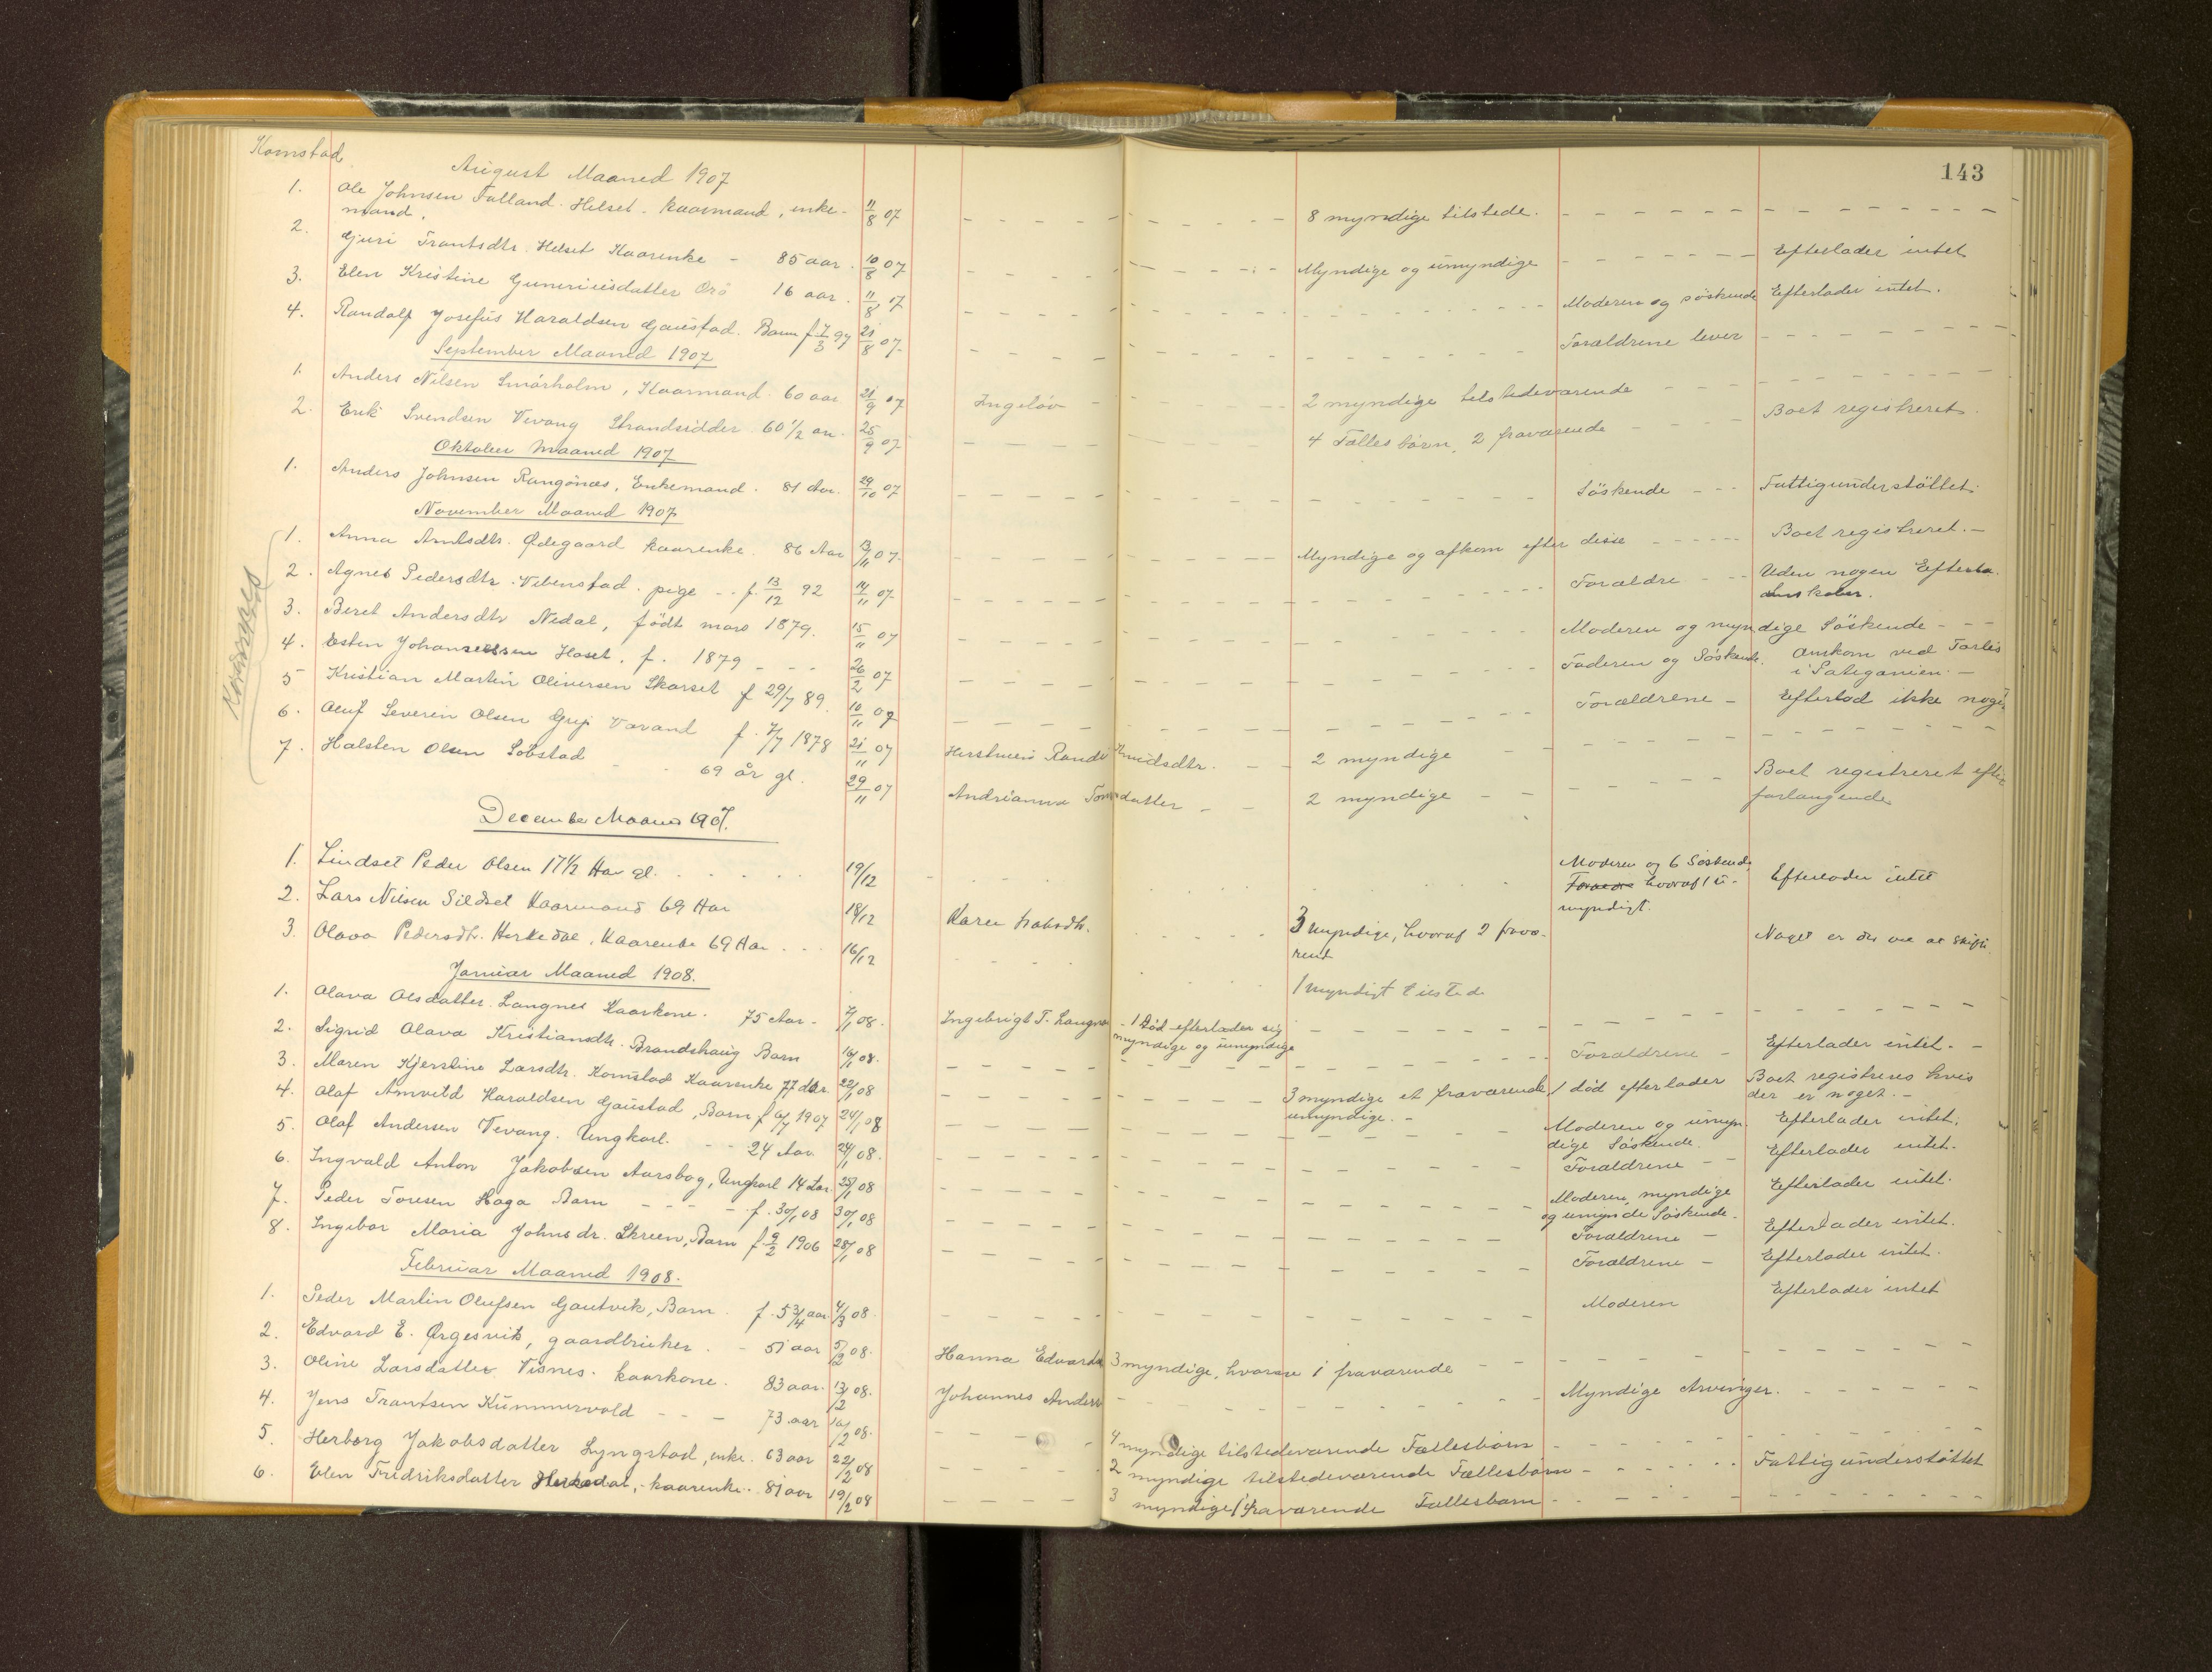 143
Komstad
August Maaned 1907
1. Ole Johnsen Falland. Helset - kaarmand, enke- 11/8 07 8 myndige tilstede.
mand.
2. Guri Frantsdtr. Helset Kaarenke - 85 aar. 10/8 07 Myndige og umyndige Efterlader intet
3. Elen Kristine Guneriusdatter Orö 16 aar. 11/8 07 Moderen og söskende Efterlader intet.
4. Randolf Josefus Haraldsen Gaustad. Barn f 7/3 97 21/8 07. Forældrene lever
September Maaned 1907
1. Anders Nilsen Smörholm, Kaarmand. 60 aar 21/9 07 Ingeløv 2 myndige tilstedeværende
2. Erik Svendsen Vevang Strandsidder 60 1/2 aar. 25/9 07 4 Fælles børn, 2 fraværende Boet registreret.
Oktober Maaned 1907
1. Anders Johnsen Rangönæs, Enkemand. 81 Aar. 29/10 07 Söskende Fattigunderstöttet.
November Maaned 1907
Kornstad
1. Anna Arntsdtr. Ødegaard kaarenke. 86 Aar 13/11 07. Myndige og afkom efter disse Boet registreret.-
2. Agnes Pedersdtr. Vebenstad. pige - - f. 13/12 92 14/11 07. Forældre - - Uden nogen Efterla-
denskaber.
3. Beret Andersdtr Nedal, født mars 1879. 15/11 07 Moderen og myndige Söskende - - -
4. Esten Johannessen Hoset. f. 1879 - - - 26/2 07 Faderen og Söskende. Omkom ved Forlis
i Patagonien. -
5 Kristian Martin Oliversen Skarset f 29/7 89. 10/11 07 Forældrene - Efterlod ikke noget
6. Oluf Severin Olsen Grip Varand f. 7/7 1878 21/11 07 Hustruen Randi Knudsdtr. 2 myndige
7. Halsten Olsen Lobstad - - 69 år gl. 29/11 07 Andrianna Tomasdatter - - 2 myndige - - Boet registreret efter
forlangende
December Maaned 1907.
1. Lindset Peder Olsen 17 1/2 Aar gl. 19/12 Moderen og 6 Söskende, Efterlader intet
hvoraf 1 u-
myndigt.
2. Lars Nilsen Sildset Kaarmand 69 Aar 18/12 Karen 3 myndige, hvoraf 2 fravæ-
rend Noget er der
3. Olava Pedersdtr. Herkedal, Kaarenke 69 Aar 16/12 1 myndigt tilstede
Januar Maaned 1908.
1. Olava Olsdatter. Langnes Kaarkone. 75 Aar - 7/1 08. Ingebrigt T. Langnes - 1 Död efterlader sig
myndige og umyndige
2. Sigrid Olava Kristiansdtr. Brandshaug Barn 16/1 08. Forældrene - Efterlader intet. -
3. Maren Kjerstine Larsdtr. Kornstad Kaarenke 77 Aar. 22/1 08 3 myndige et fraværende, 1 död efterlader Boet registreres hvis
umyndige. - der er noget. -
4. Olaf Arnvild Haraldsen Gaustad, Barn f 6/4 1907 24/1 08 Moderen og umyn- Efterlader intet.
dige Söskende.
5. Olaf Andersen Vevang. Ungkarl. - - 24 Aar 24/1 08. Forældrene - - Efterlader intet.
6. Ingvald Anton Jakobsen Aarsbog, Ungkarl 14 Aar 25/1 08 Moderen, myndige Efterlader intet.
og umynde Söskende.
7. Peder Toresen Haga Barn - - - f. 30/1 08 30/1 08 Forældrene - Efterlader intet.
8. Ingebor Maria Johnsdr. Skreen, Barn f 9/2 1906 28/1 08 Forældrene - Efterlader intet.
Februar Maaned 1908.
1. Peder Martin Olufsen Gautvik, Barn. f. 5 3/4 aar 4/3 08. Moderen Efterlader intet
2. Edvard E. Ørgesvik, gaardbruker. - 51 aar 5/2 08. Hanna Edvards 3 myndige, hvorav 1 fraværende
3. Oline Larsdatter Visnes. kaarkone. 83 aar. 13/2 08. Johannes Anders Myndige Arvinger.
4. Jens Frantsen Kummervold - - - 73 aar 10/2 08. 4 myndige tilstedeværende Fællesbörn
5. Herborg Jakobsdatter Lyngstad, enke. 63 aar 22/2 08 2 myndige tilstedeværende Fællesbörn Fattigunderstöttet
6. Elen Fredriksdatter Herkedal, - kaarenke. 81 aar 19/2 08 3 myndige 1 fraværende Fællesbarn